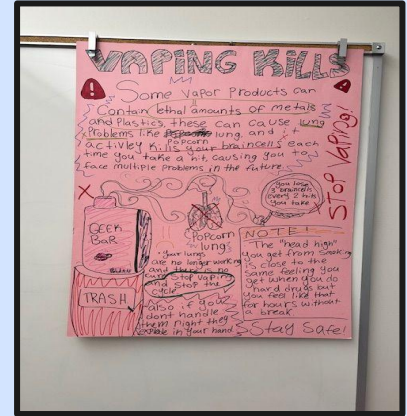 VAPING KILLS
Some Vapor Products can
Contain lethal amounts of metals
and Plastics, these can cause lung
Problems like Popcorn lung, and it
activley kills your braincells each
time you take a hit, causing you to
face multiple Problems in the future.
STOP Vaping!
you lose
braincells
every 2 hits
you take
GEEK
BAR
POPCORN
lungs
your lungs
are no longer working
and there is no
cure. Stop Vaping
and Stop the
cycle
TRASH
also if you
dont handle
them right they
explode in your hand
NOTE!
The "head high"
you get from Smoking
is close to the
same feeling you
get when you do
hard drugs but
you feel like that
for hours without
a break
Stay Safe!